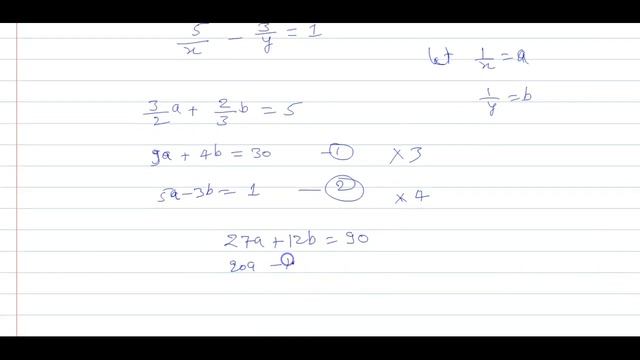 5/x - 3/y = 1
let 1/x = a
1/y = b
3/2 a + 2/3 b = 5
9a + 4b = 30 - ① × 3
5a - 3b = 1 - ② × 4
27a + 12b = 90
20a - 1